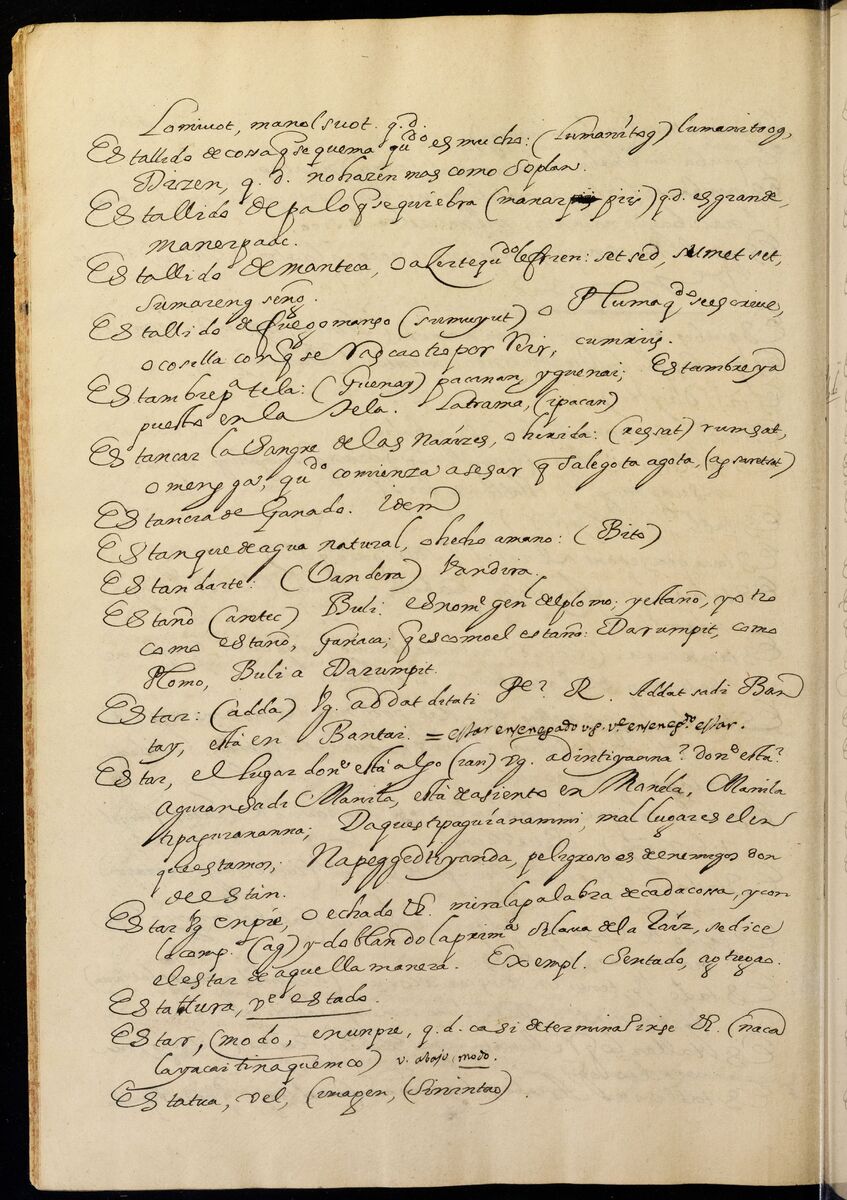 Lomivot, manolsuot. q.d.
Estallido de cossa q̃ se quema qu.do es mucho: (Lumanitog) lumanitoog,
Dizen, q. d. no hazen mas como soplan.
Estallido de palo q̃ se quiebra (manar piis) q.d. es grande,
manerpaac.
Estallido de manteca, o azeite qu.do le frien: set sed, sumet set,
sumareng seng.
Estallido de fuego manso (sumuyut) o Pluma q.do se escrive,
o cosilla con q̃ se rasca otro por reir, cumriis.
Estambre p.a tela: (Guenay) pacanan, yguenai; Estambre ya
puesto en la tela. La trama, (ipacan)
Estancar la sangre de las narizes, o herida: (regsat) rumsat,
o meregsas, qu.do comienza a sesar q̃ sale gota a gota, (agsaretsat)
Estancia de Ganado. idem
Estanque de agua natural, o hecho a mano: (Bito)
Estandarte: (Vandera) Vandira.
Estaño (aretec) Buli. es nom.e gen.l del plomo, y estaño, y otro
como estaño, Gansaca; q̃ es como el estaño: Darumpit, como
Plomo, Buli a Darumpit.
Estar: (adda) Vg. adda t ditati P.e R. Addat sadi Ban
tay, está en Bantai. = estar ensenegado v.g. v.e ensenegdo estar.
Estar, el lugar don.e está algo (ian) Vg. adinti yanna? don.e está?
aguian sadi Manila, está de asiento en Manila, Manila
ti paguiananna; Daques ti paguianammi, mal lugar es el en
que estamos; Napeggedti yanda, peligroso es de enemigos don
de están.
Estar Vg en pie, o echado &. mira la palabra de cada cossa, y con
la comp.n (ag) y doblando la prim.a silava de la raíz, se dice
el estar de aquella manera. Exempl. Sentado, agtugao.
Estatura, v.e estado.
Estar, (modo, en un pie, q.d. casi determina a irse &. (naca
layacai tinaquemco) v. abajo modo.
Estatua, vel, (imagen, (Sinintao)